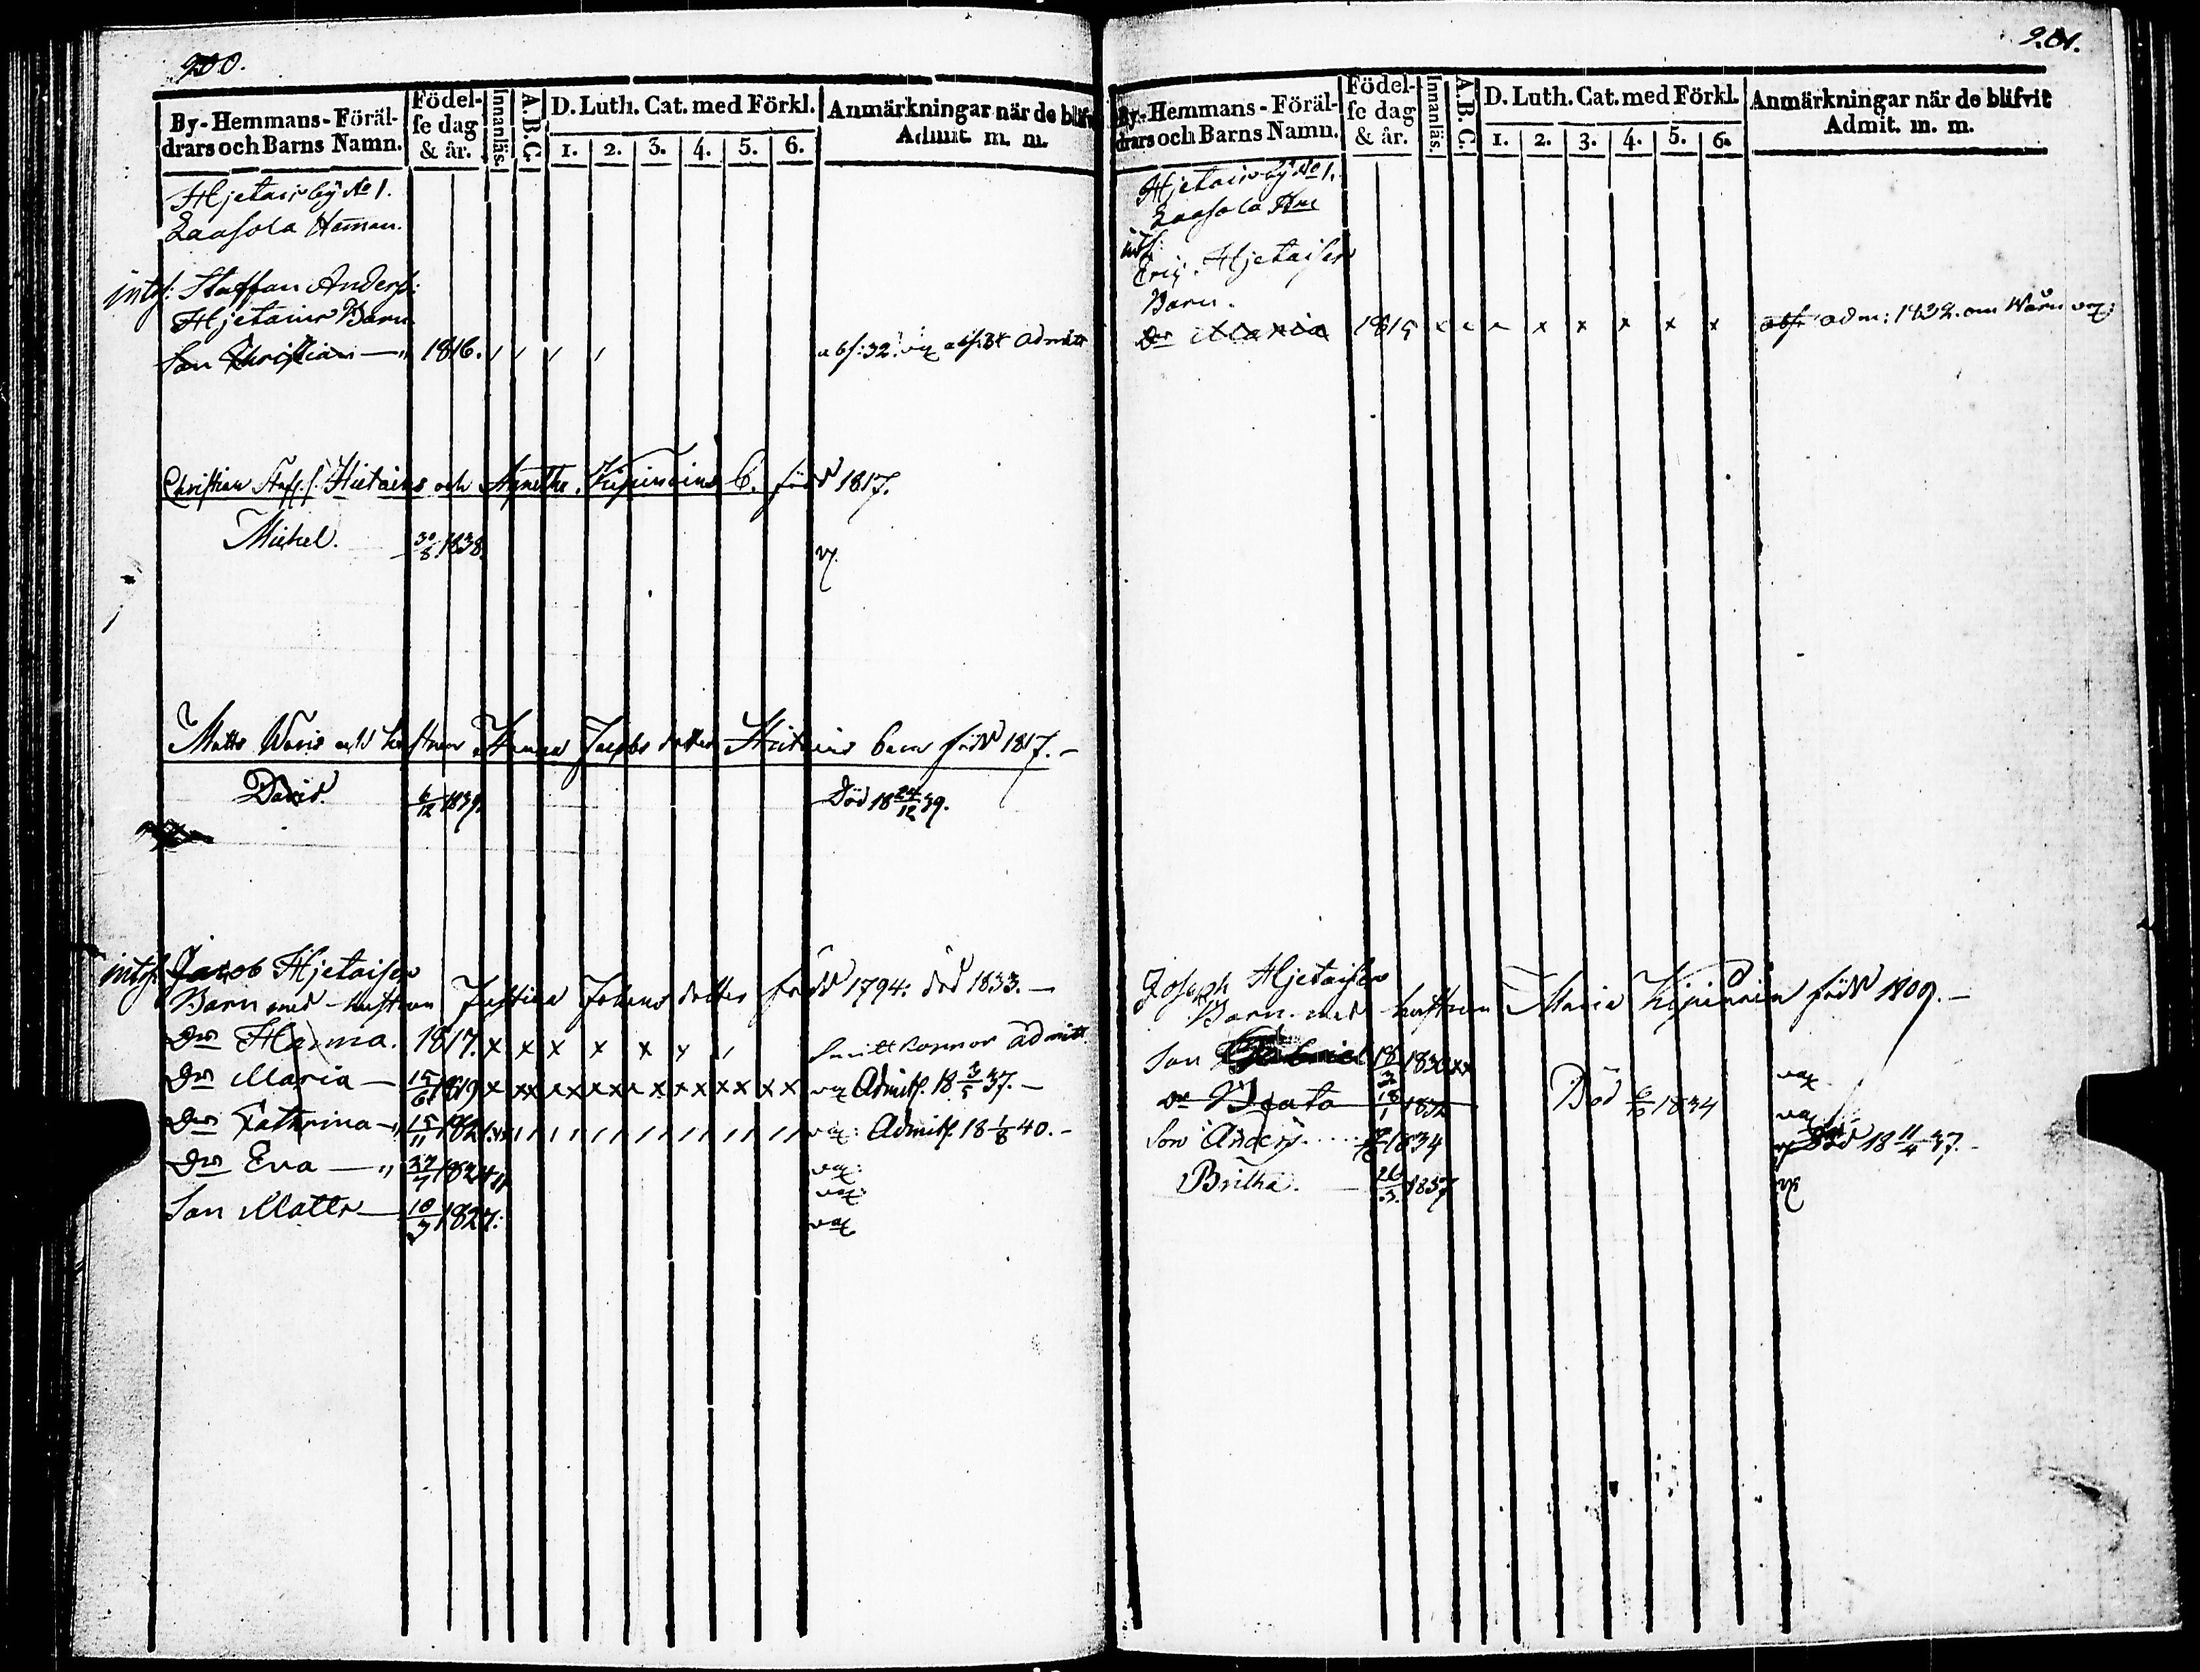 200.
By-Hemmans-Föräl-
drars och Barns Namn.
Födel-
se dag
& år.
Innanläs.
A.B.C.
D. Luth. Cat. med Förkl.
1. 2. 3. 4. 5. 6.
Anmärkningar när de blifv
Admit. m. m.
Hjetair by No 1.
Laasola Heman.
intf: Staffan Anders:
Hjetains Barn
Son Christian — " 1816. abs: 32. admitt
Christian Staff.s. Hietains och Agnetha Kipinoins b. född 1817.
Michel. 30/8 1838. v.
Matts Waris och hustrun Hanna Jacobs dotter Hietains barn född 1817. –
David. 6/12 1839. Död 18 24/12 39.
intf. Jacob Hjetaisen
Barn med hustrun Justina Johans dotter född 1794. död 1833. —
Dr Hanna. 1817. x x x x x y , admitt
Dr Maria — 15/6 1819 vac Admitt. 18 3/5 37. –
Dr Cathrina — " 15/11 1821. vac: Admitt. 18 1/8 40. –
Dr Eva — " 27/7 1824 vac:
vac:
Son Matts — 10/7 1827: vac
201.
By-Hemmans-Föräl-
drars och Barns Namn.
Födel-
se dag
& år.
Innanläs.
A.B.C.
D. Luth. Cat. med Förkl.
1. 2. 3. 4. 5. 6.
Anmärkningar när de blifvit
Admit. m. m.
Hjetair by No 1.
Laasola Hm
intf:
Eric Hjetaisen
Barn.
Dr Maria 1815 x x x x x x x x abs: adm: 1832. om Våren vac:
Joseph Hjetaisen
Barn med hustrun Maria Kipinoin född 1809. —
Son Gabriel 18/3 1830 xx vac
Dr Beata 18/1 1832 Död 1834 vac
Son Anders 1834 Död 18 11/4 37. –
Britha. 26/3 1837 v